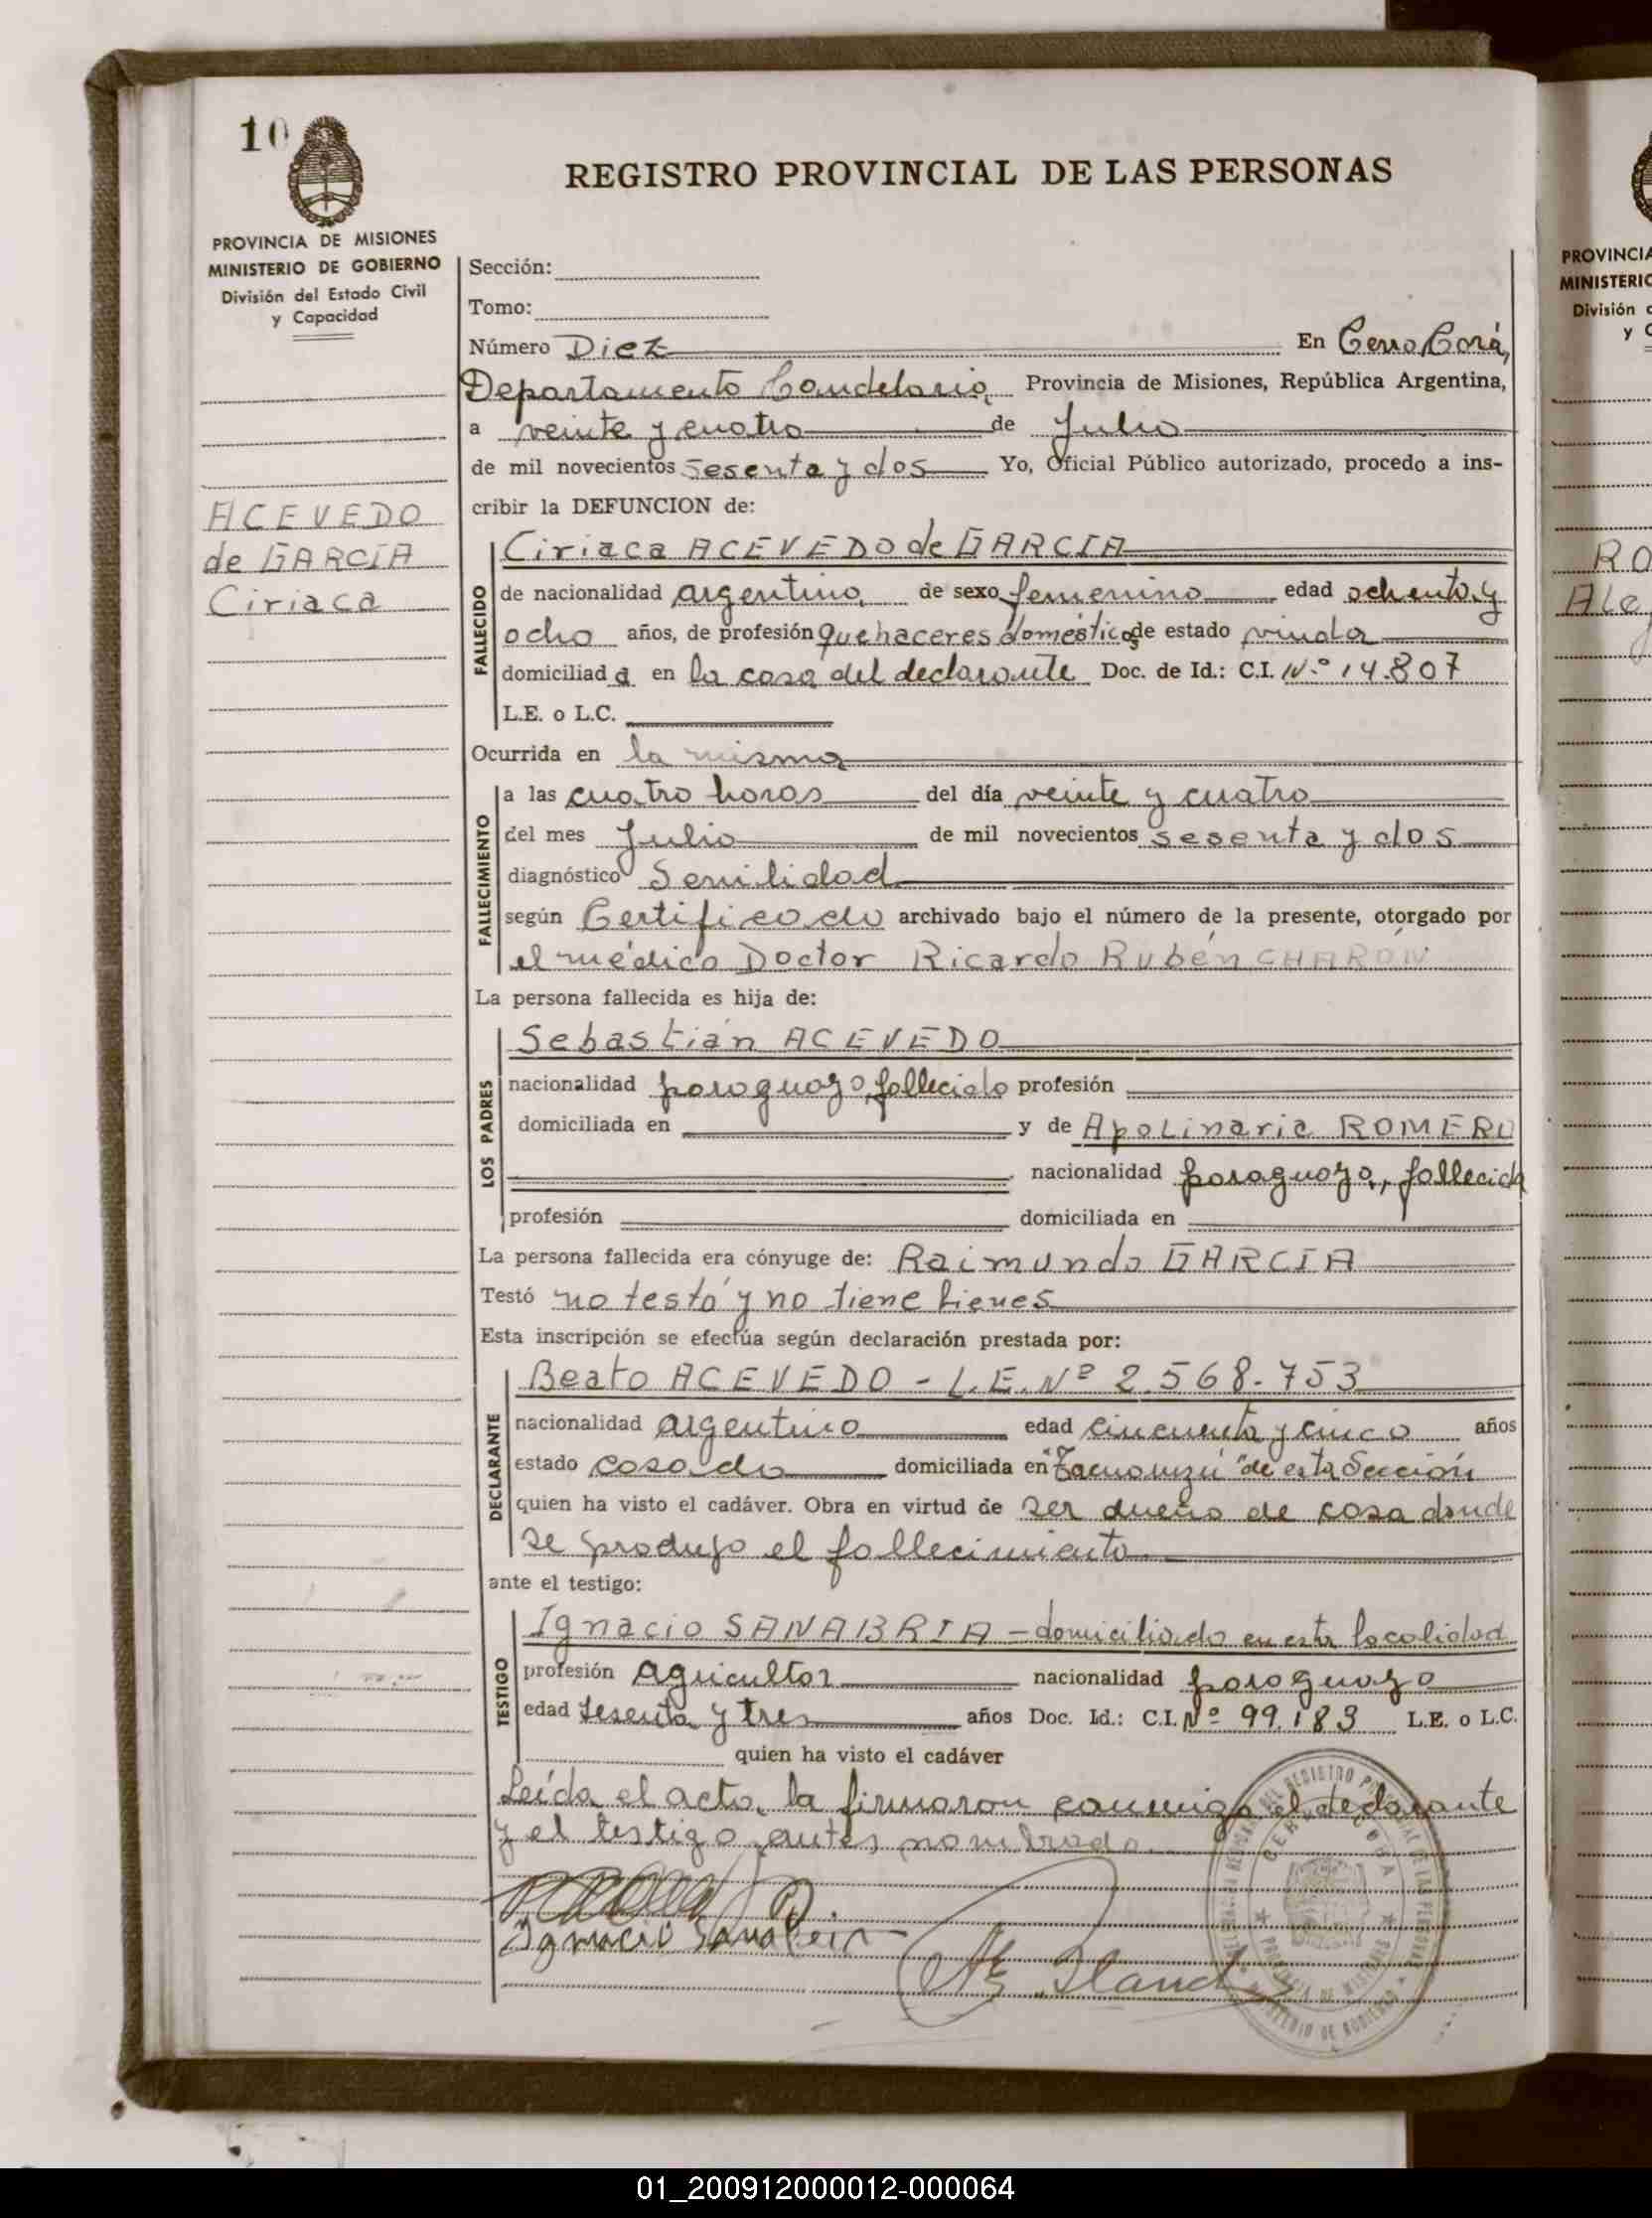 10
REGISTRO PROVINCIAL DE LAS PERSONAS
PROVINCIA DE MISIONES
MINISTERIO DE GOBIERNO
División del Estado Civil
y Capacidad
Sección:
Tomo:
Número Diez En Cerro Corá,
Departamento Candelaria, Provincia de Misiones, República Argentina,
a veinte y cuatro de Julio
de mil novecientos sesenta y dos Yo, Oficial Público autorizado, procedo a ins-
cribir la DEFUNCION de:
ACEVEDO
de GARCIA
Ciriaca
FALLECIDO
Ciriaca ACEVEDO de GARCIA
de nacionalidad argentina, de sexo femenino edad ochenta y
ocho años, de profesión Quehaceres domésticos de estado viuda
domiciliad a en la casa del declarante Doc. de Id.: C.I. Nº 14.807
L.E. o L.C.
Ocurrida en la misma
FALLECIMIENTO
a las cuatro horas del día veinte y cuatro
del mes Julio de mil novecientos sesenta y dos
diagnóstico Senilidad
según Certificado archivado bajo el número de la presente, otorgado por
el médico Doctor Ricardo Rubén CHARON
La persona fallecida es hija de:
LOS PADRES
Sebastián ACEVEDO
nacionalidad paraguayo, fallecido profesión
domiciliada en y de Apolinaria ROMERO
nacionalidad paraguaya, fallecida
profesión domiciliada en
La persona fallecida era cónyuge de: Raimundo GARCIA
Testó no testó y no tiene bienes
Esta inscripción se efectúa según declaración prestada por:
DECLARANTE
Beato ACEVEDO - L.E. Nº 2.568.753
nacionalidad argentino edad cincuenta y cinco años
estado casado domiciliada en "Tacuaruzú" de esta Sección
quien ha visto el cadáver. Obra en virtud de ser dueño de casa donde
se produjo el fallecimiento
ante el testigo:
TESTIGO
Ignacio SANABRIA - domiciliado en esta localidad
profesión agricultor nacionalidad paraguaya
edad sesenta y tres años Doc. Id.: C.I. Nº 99.183 L.E. o L.C.
quien ha visto el cadáver
Leída el acta, la firmaron conmigo el declarante
y el testigo antes nombrado.
Ignacio Sanabria
CERRO CORA
PROVINCIA DE MISIONES
PROVINCIA
MINISTERIO
División d
y C
RO
Ale
01_200912000012-000064